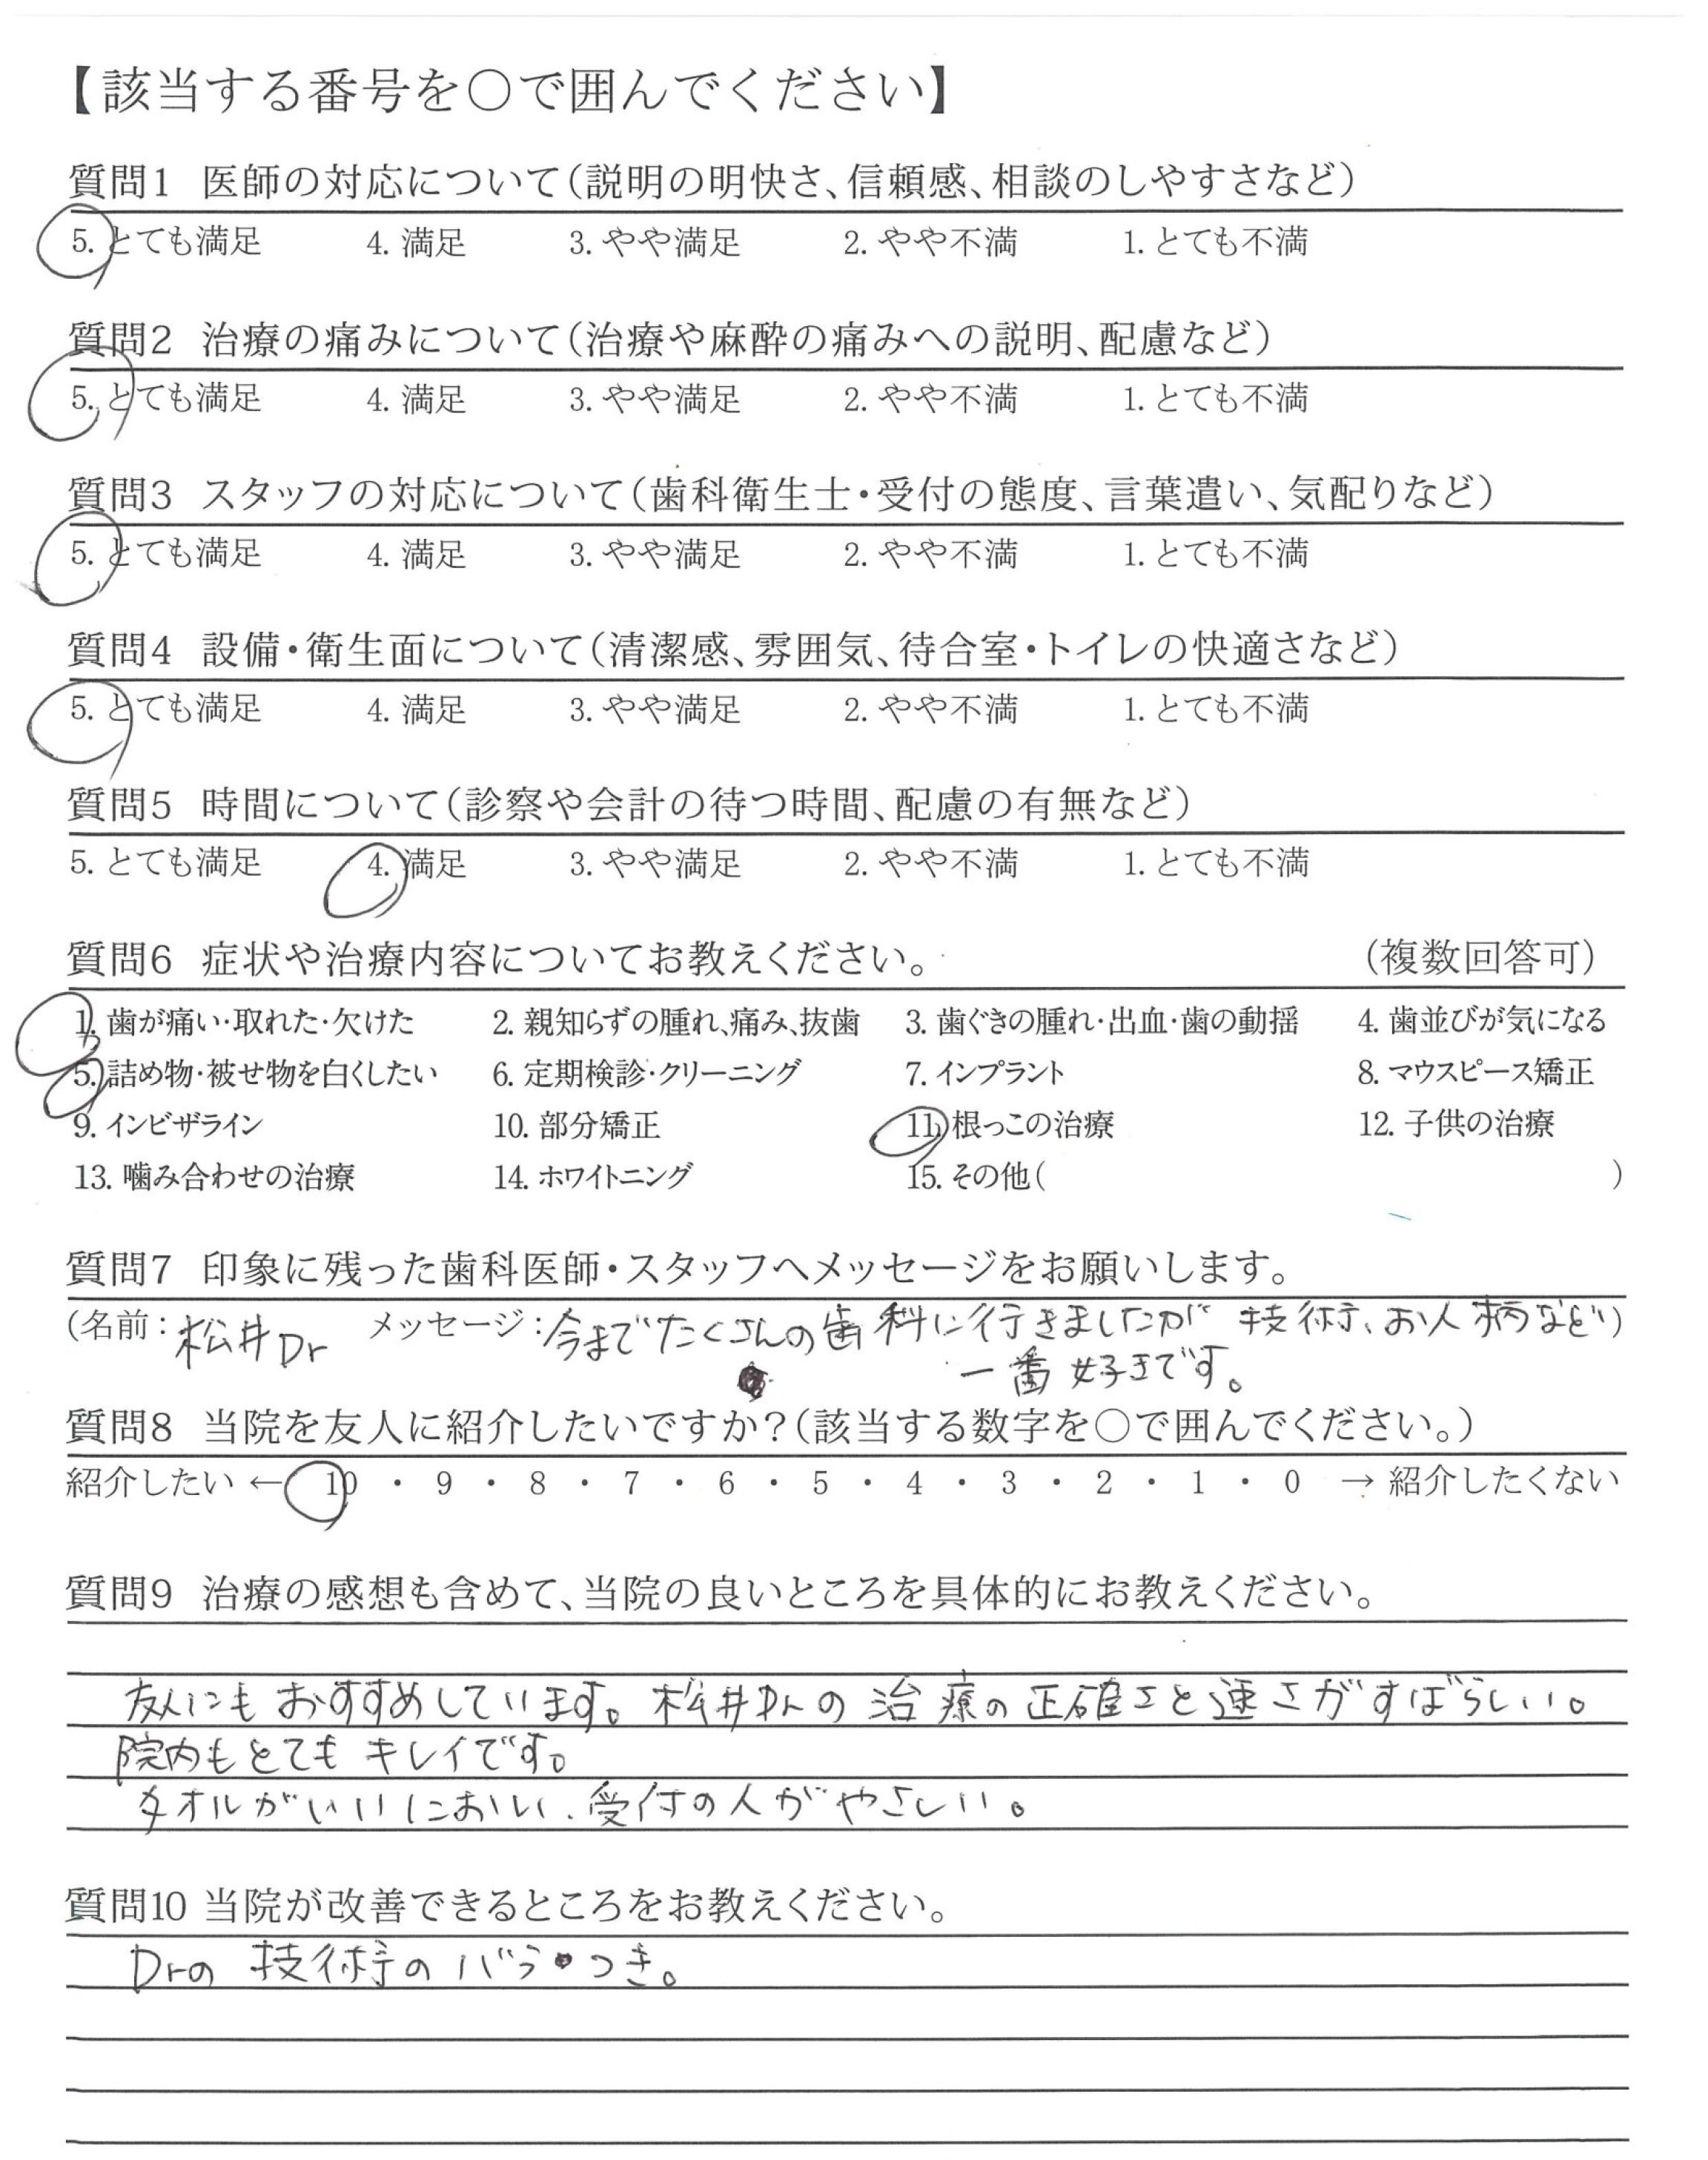 【該当する番号を○で囲んでください】
質問1 医師の対応について(説明の明快さ、信頼感、相談のしやすさなど)
5. とても満足 4. 満足 3. やや満足 2. やや不満 1. とても不満
質問2 治療の痛みについて(治療や麻酔の痛みへの説明、配慮など)
5. とても満足 4. 満足 3. やや満足 2. やや不満 1. とても不満
質問3 スタッフの対応について(歯科衛生士・受付の態度、言葉遣い、気配りなど)
5. とても満足 4. 満足 3. やや満足 2. やや不満 1. とても不満
質問4 設備・衛生面について(清潔感、雰囲気、待合室・トイレの快適さなど)
5. とても満足 4. 満足 3. やや満足 2. やや不満 1. とても不満
質問5 時間について(診察や会計の待つ時間、配慮の有無など)
5. とても満足 4. 満足 3. やや満足 2. やや不満 1. とても不満
質問6 症状や治療内容についてお教えください。 (複数回答可)
1. 歯が痛い・取れた・欠けた 2. 親知らずの腫れ、痛み、抜歯 3. 歯ぐきの腫れ・出血・歯の動揺 4. 歯並びが気になる
5. 詰め物・被せ物を白くしたい 6. 定期検診・クリーニング 7. インプラント 8. マウスピース矯正
9. インビザライン 10. 部分矯正 11. 根っこの治療 12. 子供の治療
13. 噛み合わせの治療 14. ホワイトニング 15. その他( )
質問7 印象に残った歯科医師・スタッフへメッセージをお願いします。
(名前:松井Dr メッセージ:今までたくさんの歯科に行きましたが 技術、お人柄など)
一番好きです。
質問8 当院を友人に紹介したいですか?(該当する数字を○で囲んでください。)
紹介したい ← 10 ・ 9 ・ 8 ・ 7 ・ 6 ・ 5 ・ 4 ・ 3 ・ 2 ・ 1 ・ 0 → 紹介したくない
質問9 治療の感想も含めて、当院の良いところを具体的にお教えください。
友人にもおすすめしています。松井Drの治療の正確さと速さがすばらしい。
院内もとてもキレイです。
タオルがいいにおい、受付の人がやさしい。
質問10 当院が改善できるところをお教えください。
Drの技術のバラつき。